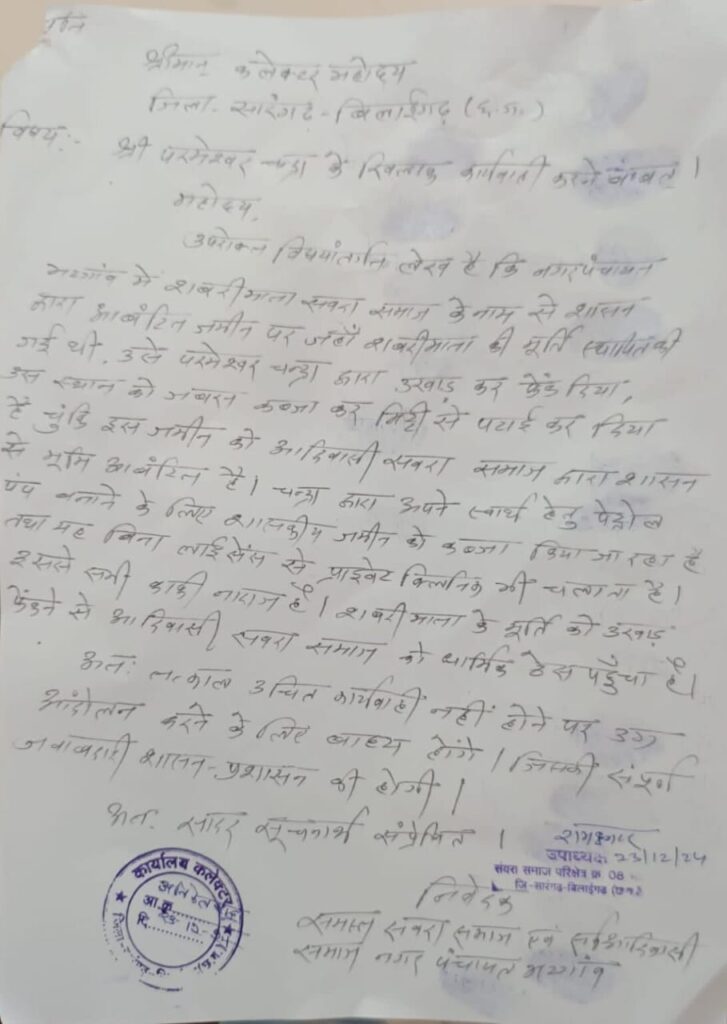 प्रति
श्रीमान् कलेक्टर महोदय
जिला- सारंगढ़ - बिलाईगढ़ (छ.ग.)
विषय:- श्री परमेश्वर चन्द्रा के खिलाफ कार्यवाही करने बाबत् ।
महोदय,
उपरोक्त विषयांतर्गत लेख है कि नगर पंचायत
भटगांव में शबरीमाता सवरा समाज के नाम से शासन
द्वारा आबंटित जमीन पर जहाँ शबरीमाता की मूर्ति स्थापित की
गई थी, उसे परमेश्वर चन्द्रा द्वारा उखाड़ कर फेंक दिया,
उस स्थान को जबरन कब्जा कर मिट्टी से पटाई कर दिया
है चुंकि इस जमीन को आदिवासी सवरा समाज द्वारा शासन
से भूमि आबंटित है। चन्द्रा द्वारा अपने स्वार्थ हेतु पेट्रोल
पंप बनाने के लिए शासकीय जमीन को कब्जा किया जा रहा है
तथा यह बिना लाईसेंस से प्राइवेट क्लिनिक भी चलाता है।
इससे सभी काफी नाराज है। शबरीमाता के मूर्ति को उखाड़
फेंकने से आदिवासी सवरा समाज को धार्मिक ठेस पहुँचा है।
अतः तत्काल उचित कार्यवाही नहीं होने पर उग्र
आंदोलन करने के लिए बाध्य होंगे। जिसकी संपूर्ण
जवाबदारी शासन-प्रशासन की होगी।
अतः सादर सूचनार्थ संप्रेषित ।
उपाध्यक्ष 23/12/24
संवरा समाज परिक्षेत्र क्र 08
जि-सारंगढ-बिलाईगढ (छ०ग०)
निवेदक
समस्त सवरा समाज एवं सर्व आदिवासी
समाज नगर पंचायत भटगांव
कार्यालय कलेक्टर
आ.क्र.
दि.